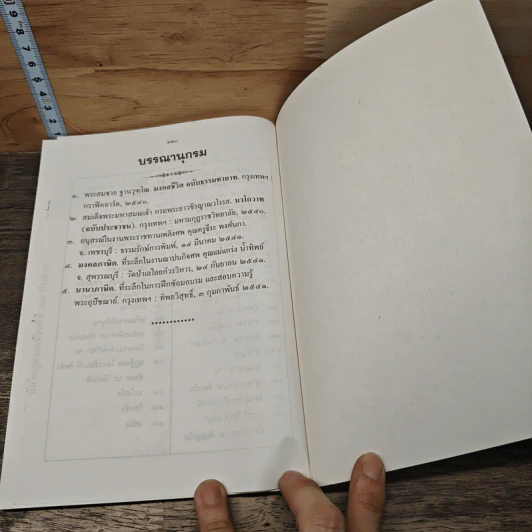 บรรณานุกรม
๑. พระสมชาย ฐานวุฑฺโฒ. มงคลชีวิต ฉบับธรรมทายาท. กรุงเทพฯ :
กราฟิคอาร์ต, ๒๕๔๐.
๒. สมเด็จพระมหาสมณเจ้า กรมพระยาวชิรญาณวโรรส. นวโกวาท
(ฉบับประชาชน). กรุงเทพฯ : มหามกุฏราชวิทยาลัย, ๒๕๔๐.
๓. อนุสรณ์ในงานพระราชทานเพลิงศพ คุณครูจีระ พงศ์นภา.
จ. เพชรบุรี : ธรรมรักษ์การพิมพ์, ๑๔ มีนาคม ๒๕๔๑.
๔. มงคลภาษิต. ที่ระลึกในงานฌาปนกิจศพ คุณแม่แกร่ง น้ำทิพย์
จ. สุพรรณบุรี : วัดป่าเลไลยก์วรวิหาร, ๒๔ กันยายน ๒๕๔๑.
๕. นานาภาษิต. ที่ระลึกในการฝึกซ้อมอบรม และสอบความรู้
พระอุปัชฌาย์. กรุงเทพฯ : ทิพยวิสุทธิ์, ๓ กุมภาพันธ์ ๒๕๔๑.
............
9
8
7
6
5
4
3
2
1